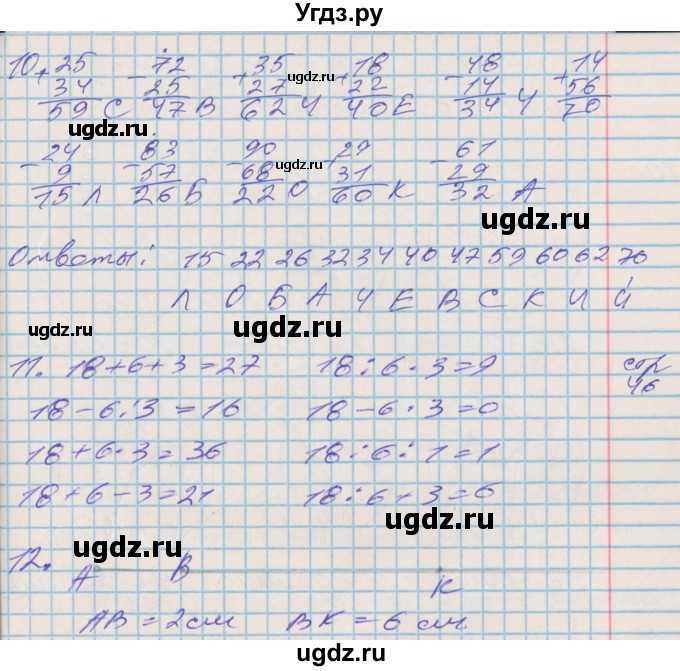 Угдз.ру
10. + 25 - 72 + 35 + 18 - 48 + 14
34 25 27 22 14 56
59 С 47 В 62 И 40 Е 34 Ч 70
- 24 - 83 - 90 - 29 - 61
9 57 68 31 29
15 Л 26 Б 22 О 60 К 32 А
Ответы: 15 22 26 32 34 40 47 59 60 62 70
Л О Б А Ч Е В С К И Й
11. 18 + 6 + 3 = 27 18 : 6 · 3 = 9 стр
18 - 6 : 3 = 16 18 - 6 · 3 = 0 46
18 + 6 · 3 = 36 18 : 6 : 1 = 1
18 + 6 - 3 = 21 18 : 6 + 3 = 6
12. А В К
АВ = 2 см ВК = 6 см
ugdz.ru
ugdz.ru
ugdz.ru
ugdz.ru
ugdz.ru
ugdz.ru
ugdz.ru
ugdz.ru
ugdz.ru
ugdz.ru
ugdz.ru
ugdz.ru